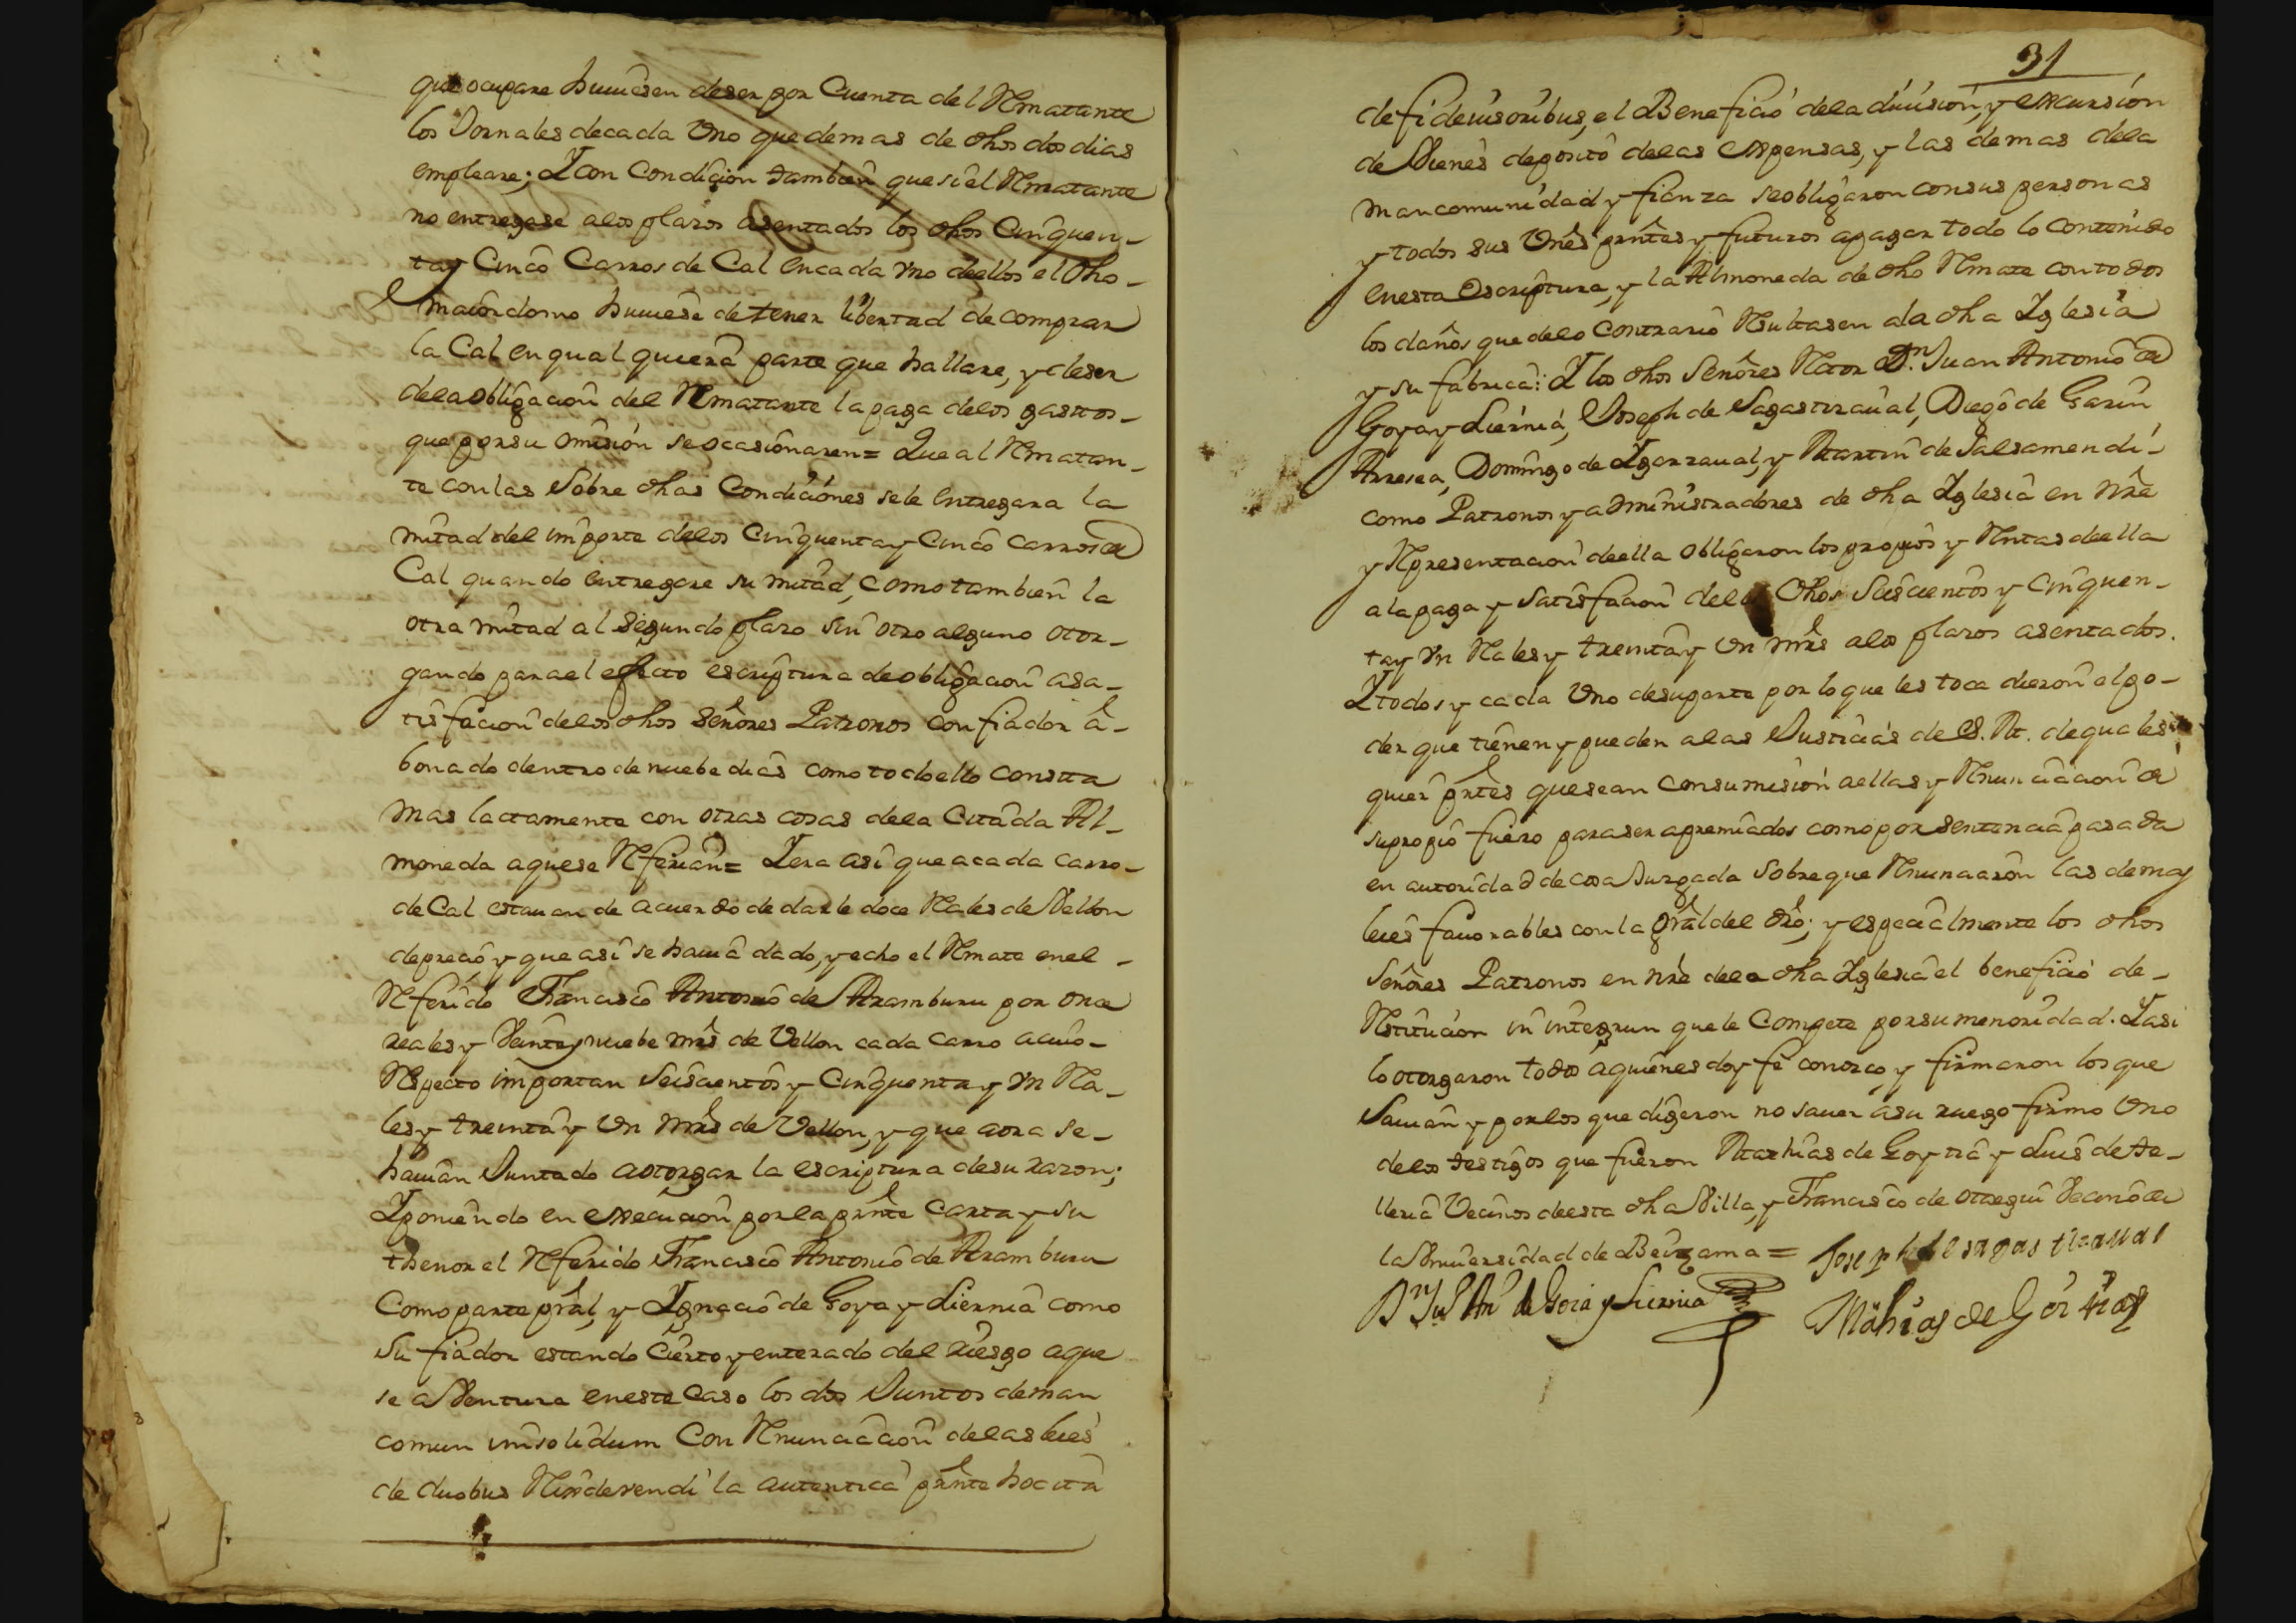 que ocupare huuiesen deser por Cuenta del Rematante
los Jornales decada Vno que demas de dhos dos dias
empleare; Y con Condicion tambien que si el Rematante
no entregase alos plazos asentados los dhos Cinquen-
tay Cinco Carros de Cal en cada vno deellos el dho-
maiordomo huuiese detener libertad de comprar
la Cal en qual quiera parte que hallare, y deser
dela obligacion del Rematante la paga delos gastos-
que por su omision se ocasionaren= Que al Rematan-
te con las Sobre dhas Condiciones sele entregara la
mitad del importe delos Cinquenta y Cinco carros de
Cal quando entregare su mitad, como tambien la
otra mitad al Segundo plazo sin otro alguno otor-
gando para el efecto escriptura de obligacion asa-
tisfacion delos dhos Señores Patronos con fiador a-
bonado dentro de nuebe dias como todo ello consta
mas lactamente con otras cosas dela Citada Al-
moneda aquese Referian= Y era asi que a cada carro-
de Cal estauan de acuerdo de darle doce Reales de Vellon
deprecio y que asi se hauia dado, y echo el Remate en el-
Referido Francisco Antonio de Aramburu por once
reales y Veinte y nuebe mrs de Vellon cada carro a cuio-
Respecto importan Seiscientos y Cinquenta y vn Rea-
les y treinta y vn mrs de Vellon, y que aora se-
hauian Juntado aotorgar la escriptura desu razon;
Y poniendo en execucion por la prnte Carta y su
thenor el Referido Francisco Antonio de Aramburu
Como parte pral, y Ygnacio de Goya y Liernia como
su fiador estando Cierto y enterado del riesgo aque
se aVentura eneste Caso los dos Juntos deman
comun insolidum Con Renunciacion delas leies
de duobus Rex devendi la autentica prnte hoc ita
31
defideiusoribus, el Beneficio dela diuision, y excursion
de Vienes deposito delas expensas, y las demas dela
mancomunidad y fianza se obligaron con sus personas
y todos sus Vnes prntes y futuros apagar todo lo Contenido
en esta Escriptura, y la Almoneda de dho Remate con todos
los daños que delo Contrario Resultasen ala dha Yglesia
y su fabrica: Y los dhos Señores Rector Dn. Juan Antonio de
Goya y Liernia, Joseph de Sagastizaual, Diego de Garin
Arresea, Domingo de Ygarzaual, y Martin de Salsamendi-
como Patronos y administradores de dha Yglesia en nre
y Representacion deella obligaron los propios y Rentas deella
ala paga y Satisfacion delos dhos Seiscientos y Cinquen-
tay vn Reales y treinta y vn mrs alos plazos asentados.
Y todos y cada Vno desuparte por lo que les toca dieron elpo-
der que tienen y pueden alas Justicias de S. M. dequales
quier prtes quesean con sumision aellas y Renunciacion de
supropio fuero para ser apremiados como por sentencia pasada
en autoridad de cosa Juzgada Sobre que Renunciaron las demas
leies fauorables con la gral del dro; y especialmente los dhos
Señores Patronos en nre dela dha Yglesia el beneficio de-
Restitucion in integrun que le Compete por su menoridad. Y asi
lo otorgaron todos aquienes doy fe conozco, y firmaron los que
Sauian y por los que digeron no sauer asu ruego firmo Vno
delos testigos que fueron Mathias de Goytia y Luis de te-
lleria Vecinos deesta dha Villa, y Francisco de Otegui Vecino de
la Vniuersidad de Beizama= Joseph de sagastizaual
Dn Jua An de Goia y Liernia Mathias de Goitia